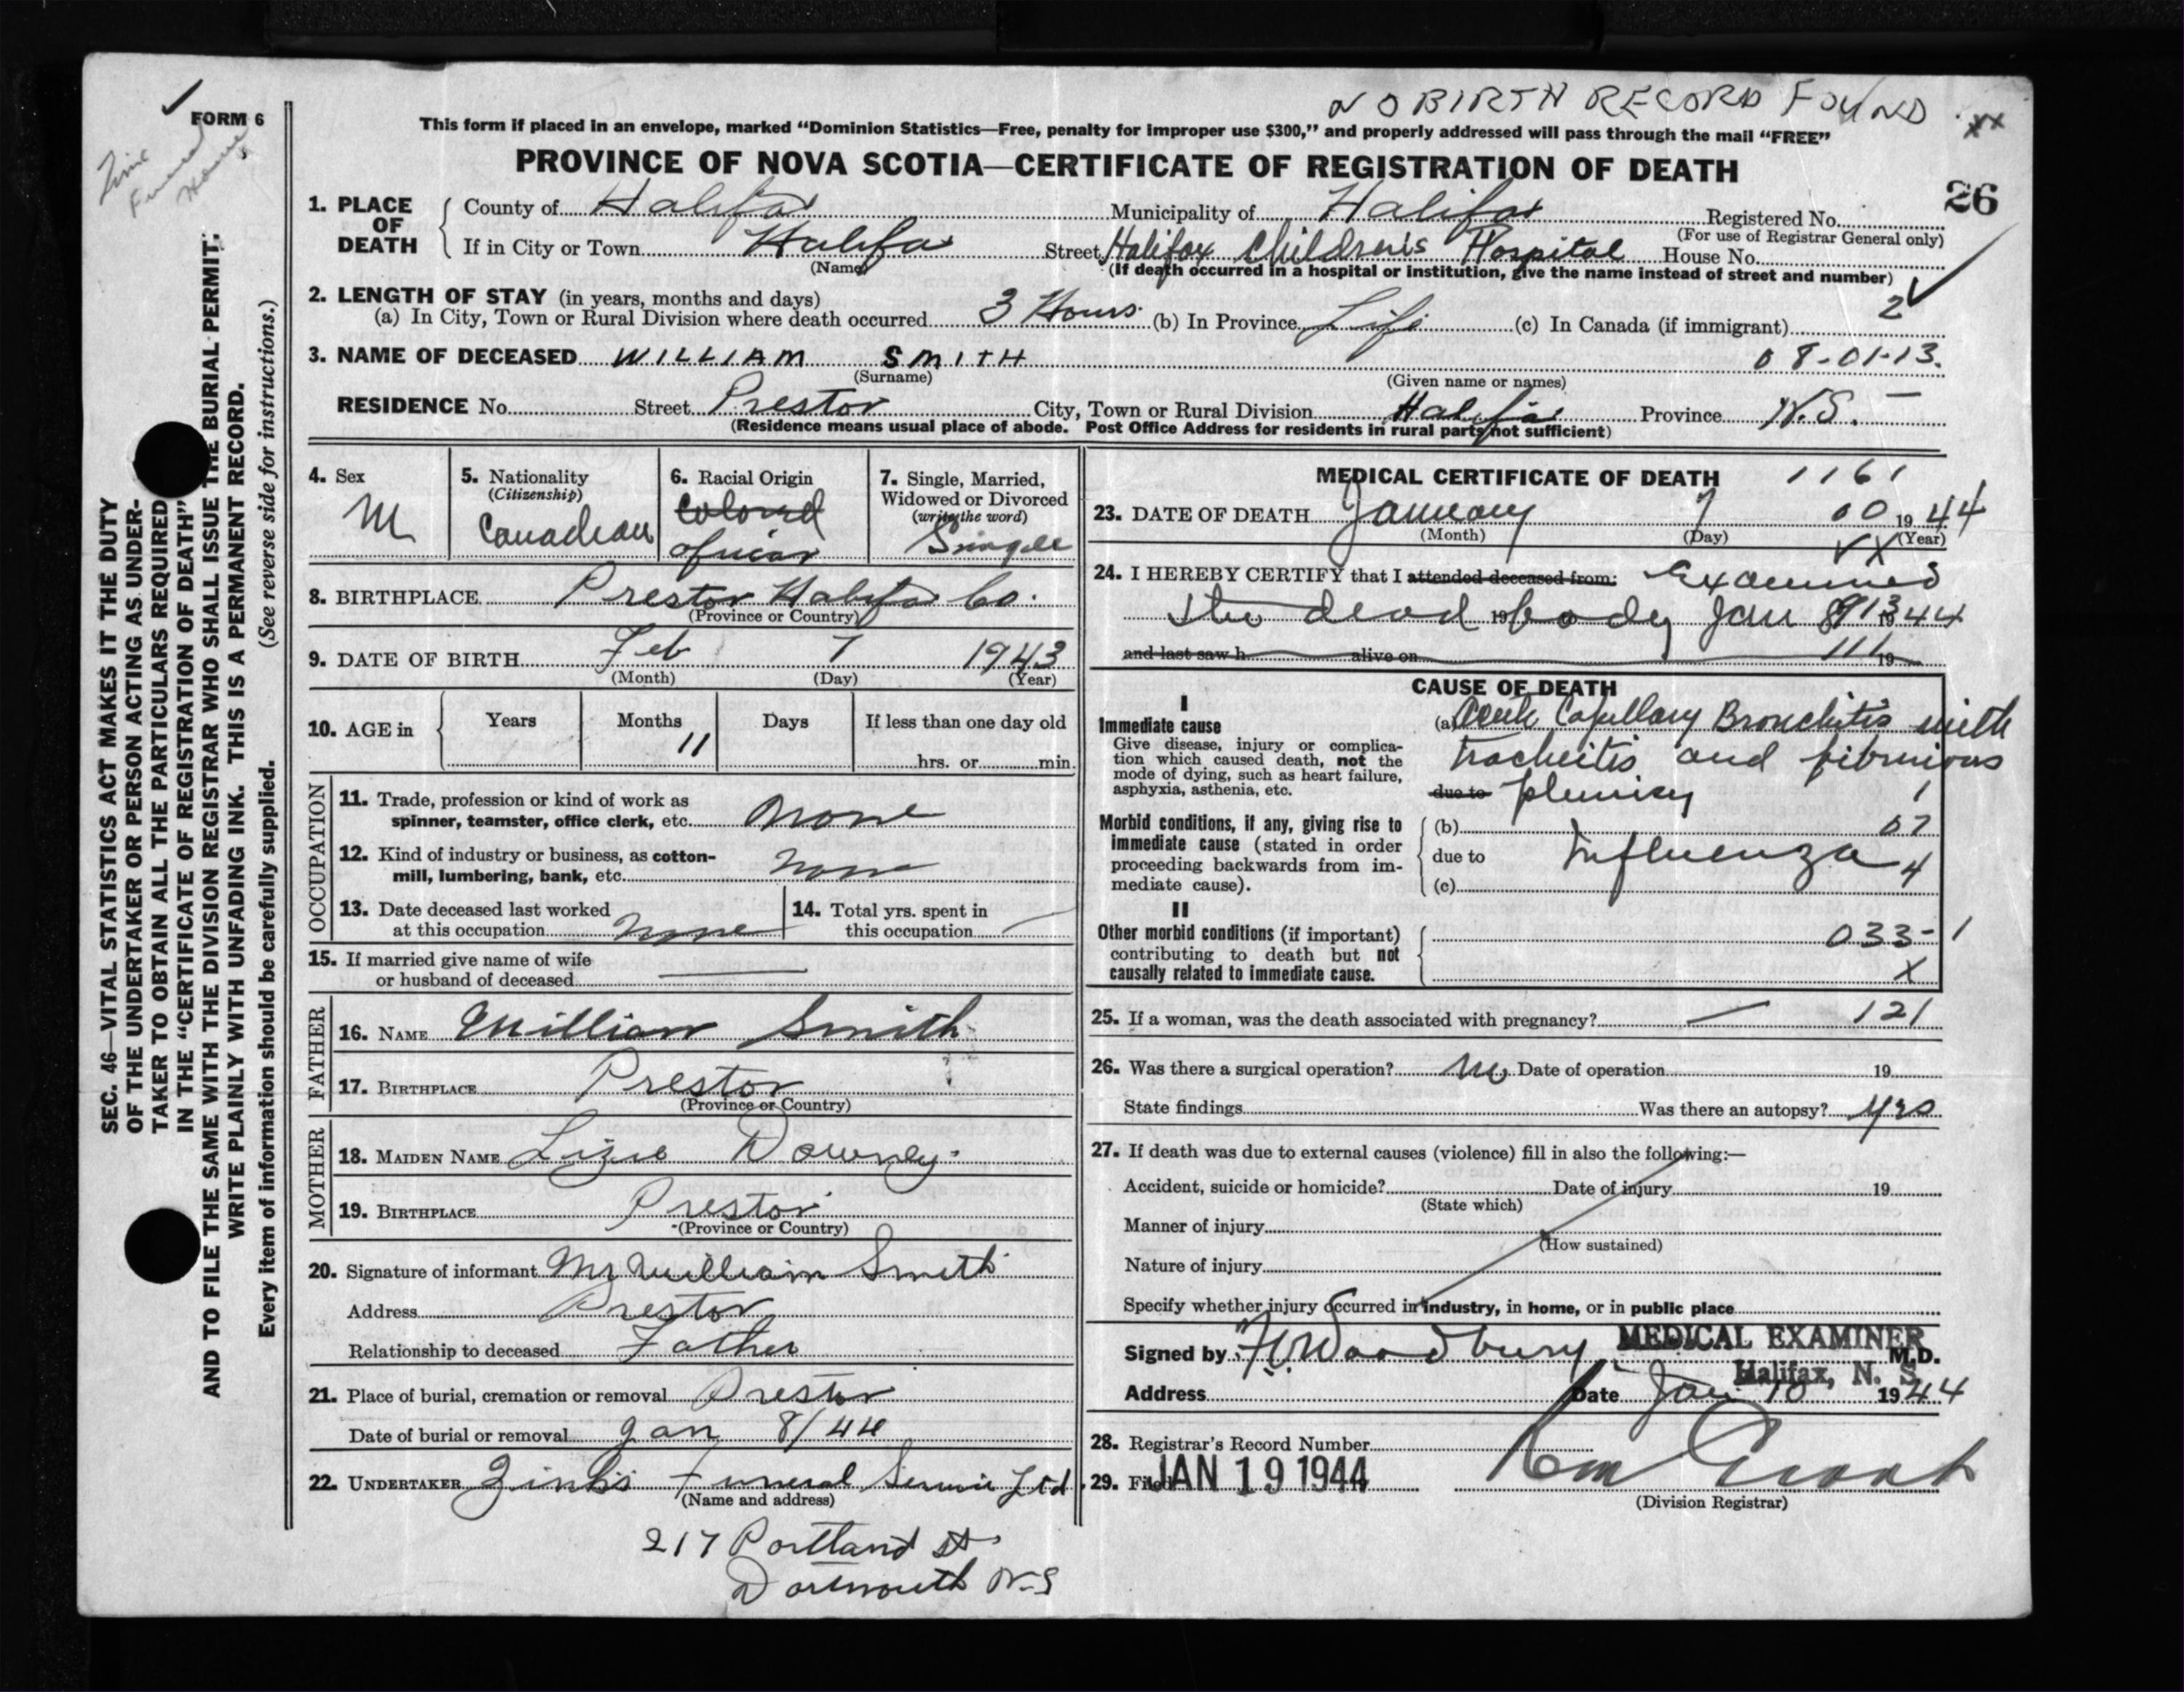 NO BIRTH RECORD FOUND xx
FORM 6
Funeral
Home
This form if placed in an envelope, marked "Dominion Statistics—Free, penalty for improper use $300," and properly addressed will pass through the mail "FREE"
PROVINCE OF NOVA SCOTIA—CERTIFICATE OF REGISTRATION OF DEATH
26
SEC. 46—VITAL STATISTICS ACT MAKES IT THE DUTY
OF THE UNDERTAKER OR PERSON ACTING AS UNDER-
TAKER TO OBTAIN ALL THE PARTICULARS REQUIRED
IN THE "CERTIFICATE OF REGISTRATION OF DEATH"
AND TO FILE THE SAME WITH THE DIVISION REGISTRAR WHO SHALL ISSUE THE BURIAL PERMIT.
WRITE PLAINLY WITH UNFADING INK. THIS IS A PERMANENT RECORD.
Every item of information should be carefully supplied. (See reverse side for instructions.)
1. PLACE OF DEATH
County of Halifax Municipality of Halifax Registered No.
(For use of Registrar General only)
If in City or Town Halifax Street Halifax Children's Hospital House No.
(Name) (If death occurred in a hospital or institution, give the name instead of street and number)
2. LENGTH OF STAY (in years, months and days) 2
(a) In City, Town or Rural Division where death occurred 3 Hours (b) In Province Life (c) In Canada (if immigrant)
3. NAME OF DECEASED WILLIAM SMITH 08-01-13.
(Surname) (Given name or names)
RESIDENCE No. Street Preston City, Town or Rural Division Halifax Province N.S. —
(Residence means usual place of abode. Post Office Address for residents in rural parts not sufficient)
4. Sex
M
5. Nationality
(Citizenship)
Canadian
6. Racial Origin
Colored
African
7. Single, Married,
Widowed or Divorced
(write the word)
Single
8. BIRTHPLACE Preston Halifax Co.
(Province or Country)
9. DATE OF BIRTH Feb 7 1943
(Month) (Day) (Year)
10. AGE in Years Months Days If less than one day old
11 hrs. or min.
OCCUPATION
11. Trade, profession or kind of work as
spinner, teamster, office clerk, etc. none
12. Kind of industry or business, as cotton-
mill, lumbering, bank, etc. none
13. Date deceased last worked
at this occupation none
14. Total yrs. spent in
this occupation
15. If married give name of wife
or husband of deceased
FATHER
16. NAME William Smith
17. BIRTHPLACE Preston
(Province or Country)
MOTHER
18. MAIDEN NAME Lizie Downey
19. BIRTHPLACE Preston
(Province or Country)
20. Signature of informant Mr William Smith
Address Preston
Relationship to deceased Father
21. Place of burial, cremation or removal Preston
Date of burial or removal Jan 8/44
22. UNDERTAKER Zink's Funeral Service Ltd
(Name and address)
217 Portland St
Dartmouth N.S
MEDICAL CERTIFICATE OF DEATH 1161
23. DATE OF DEATH January 7 00 1944
(Month) (Day) (Year)
24. I HEREBY CERTIFY that I attended deceased from: Examined
the dead 19 body Jan 1944
and last saw h alive on 111 19
CAUSE OF DEATH
I
Immediate cause
Give disease, injury or complica-
tion which caused death, not the
mode of dying, such as heart failure,
asphyxia, asthenia, etc.
(a) Acute Capillary Bronchitis with
tracheitis and fibrinous
due to pleurisy 1
Morbid conditions, if any, giving rise to
immediate cause (stated in order
proceeding backwards from im-
mediate cause).
(b) 07
due to Influenza 4
(c)
II
Other morbid conditions (if important)
contributing to death but not
causally related to immediate cause.
033-1
X
25. If a woman, was the death associated with pregnancy? — 121
26. Was there a surgical operation? no Date of operation 19
State findings Was there an autopsy? yes
27. If death was due to external causes (violence) fill in also the following:—
Accident, suicide or homicide? Date of injury 19
(State which)
Manner of injury
(How sustained)
Nature of injury
Specify whether injury occurred in industry, in home, or in public place
Signed by Woodbury MEDICAL EXAMINER M.D.
Halifax, N. S.
Address Date Jan 10 1944
28. Registrar's Record Number
29. Filed JAN 19 1944
(Division Registrar)